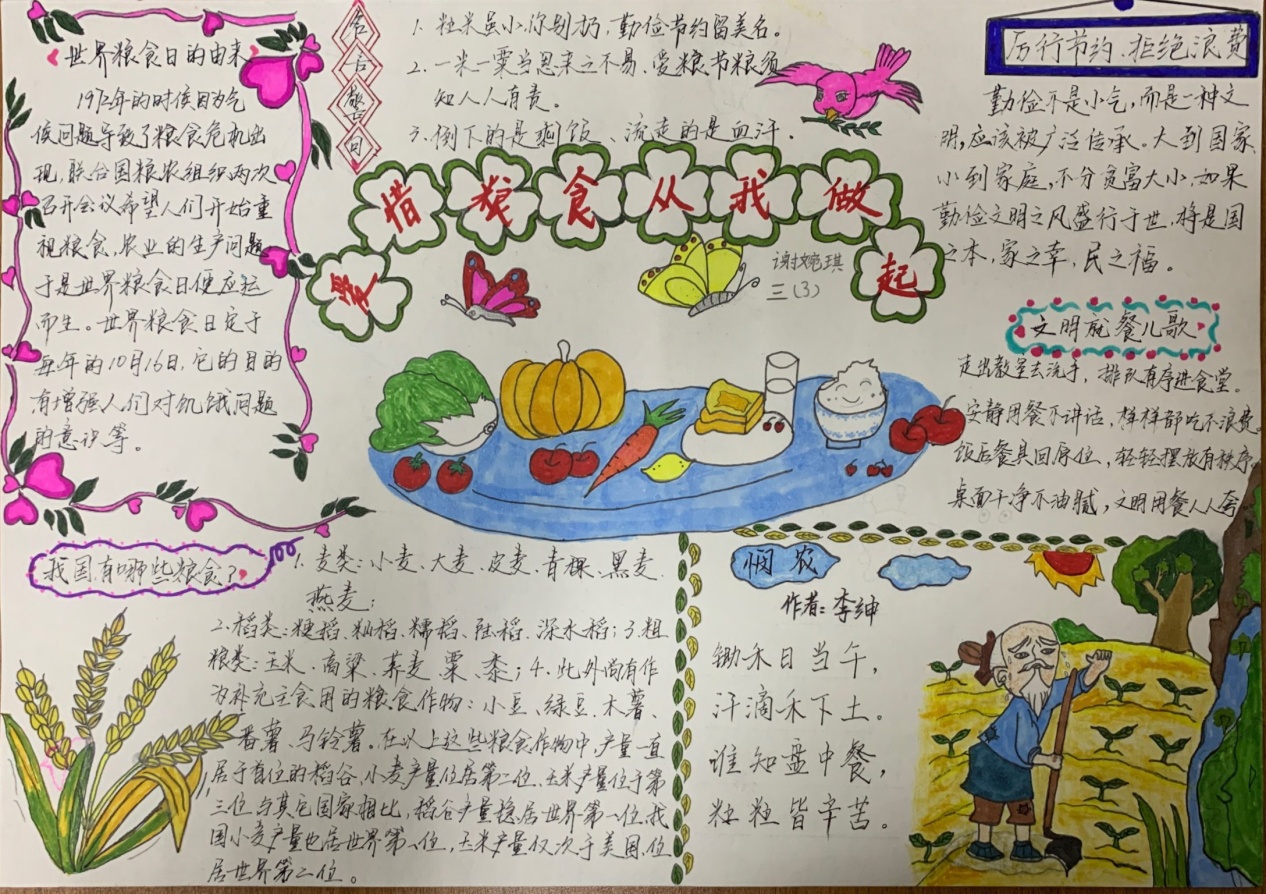 世界粮食日的由来
1972年的时候因为气
候问题导致了粮食危机出
现，联合国粮农组织两次
召开会议希望人们开始重
视粮食、农业的生产问题
于是世界粮食日便应运
而生。世界粮食日定于
每年的10月16日，它的目的
有增强人们对饥饿问题
的意识等。
名言警句
1. 粒米虽小你别扔，勤俭节约留美名。
2. 一米一粟当思来之不易、爱粮节粮须
知人人有责。
3. 倒下的是剩饭、流走的是血汗.
爱惜粮食从我做起
谢婉琪
三(3)
厉行节约、拒绝浪费
勤俭不是小气，而是一种文
明，应该被广泛传承。大到国家、
小到家庭，不分贫富大小，如果
勤俭文明之风盛行于世，将是国
之本，家之幸，民之福。
文明就餐儿歌
走出教室去洗手，排队有序进食堂。
安静用餐不讲话，样样都吃不浪费
饭后餐具回原位，轻轻摆放有秩序
桌面干净不油腻，文明用餐人人夸
我国有哪些粮食？
1. 麦类：小麦、大麦、皮麦、青稞、黑麦、
燕麦；
2. 稻类：粳稻、籼稻、糯稻、陆稻、深水稻；3. 粗
粮类：玉米、高粱、荞麦、粟、黍；4. 此外尚有作
为补充主食用的粮食作物：小豆、绿豆、木薯、
番薯、马铃薯。在以上这些粮食作物中，产量一直
居于首位的稻谷，小麦产量位居第二位、玉米产量位于第
三位与其它国家相比，稻谷产量稳居世界第一位，我
国小麦产量也居世界第一位，玉米产量仅次于美国，位
居世界第二位。
悯农
作者：李绅
锄禾日当午，
汗滴禾下土。
谁知盘中餐，
粒粒皆辛苦。